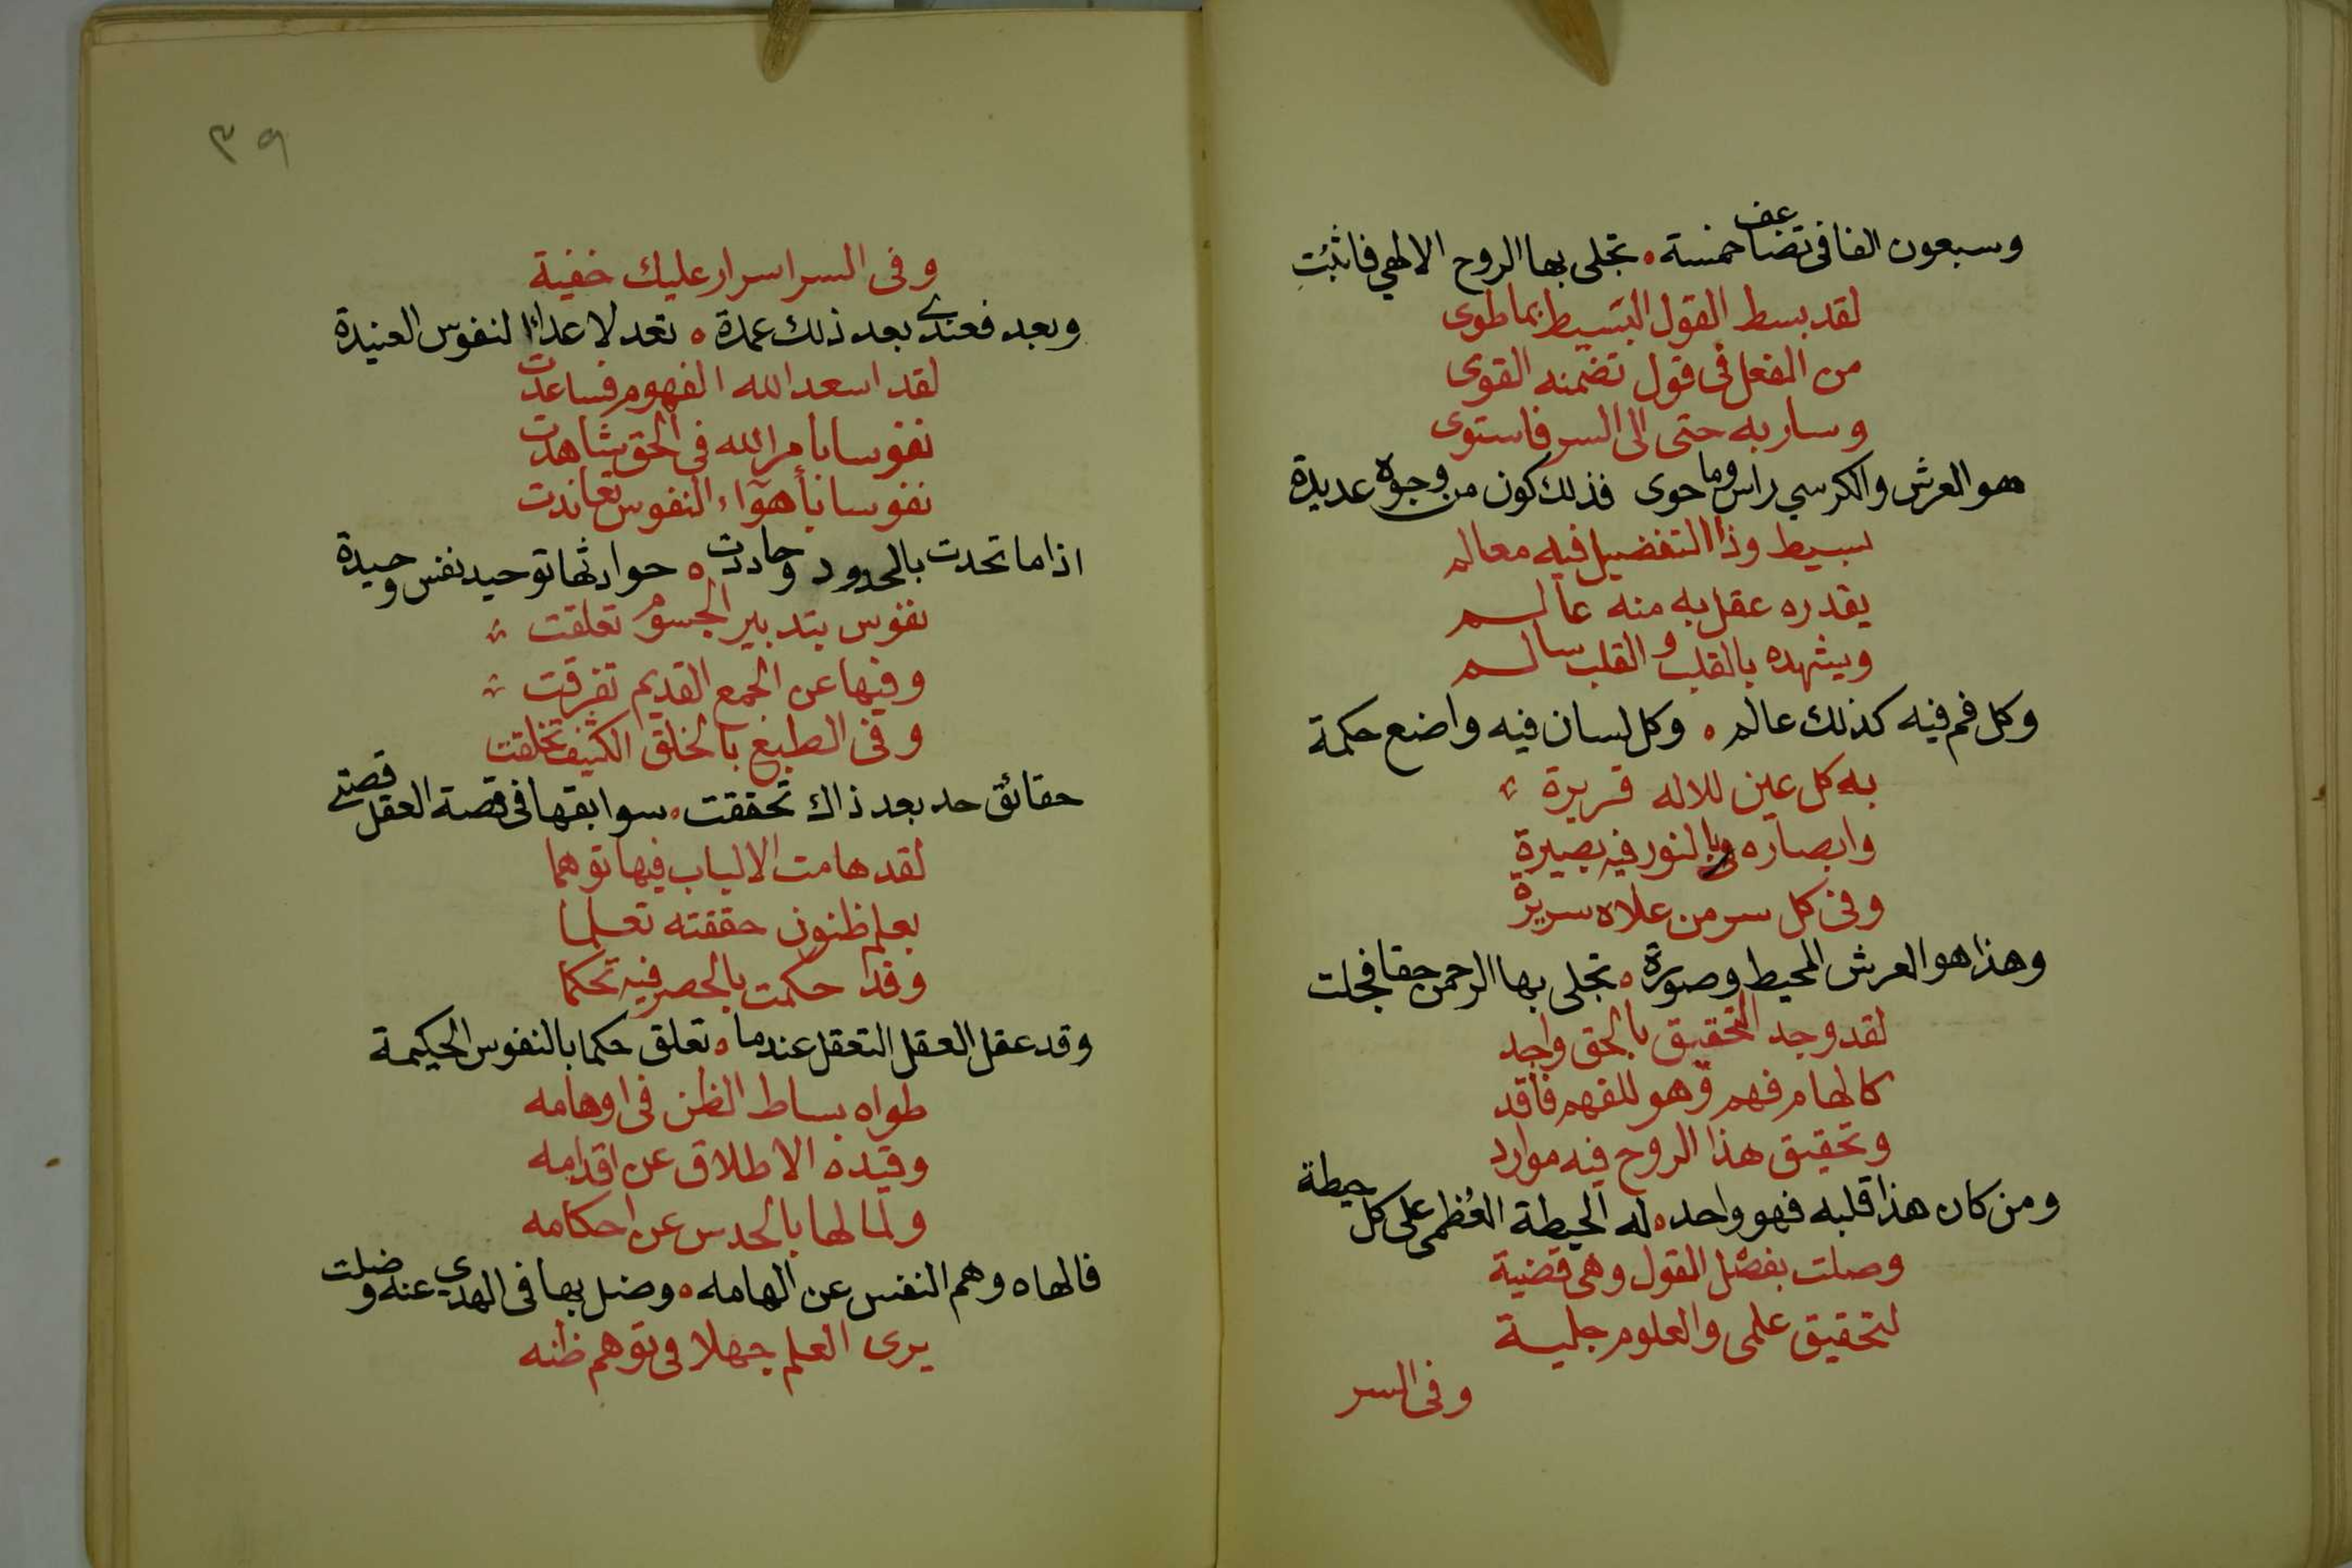 وسبعون الفا فى تضاعف خمسة ۰ تجلى بها الروح الالهي فاثبُتِ
لقد بسط القول البَسيط بما طوى
من الفعل فى قول تضمنه القوى
وسار به حتى الى السر فاستوى
هو العرش والكرسي راس وما حوى فذلك كون من وجوه عديدة
بسيط وذا التفضيل فيه معالم
يقدره عقل به منه عالم
ويشهده بالقلب والقلب سالم
وكل فم فيه كذلك عالم ۰ وكل لسان فيه واضع حكمة
به كل عين للاله قريرة
وابصاره بالنور فيه بصيرة
وفى كل سر من علاه سريرة
وهذا هو العرش المحيط وصورة ۰ تجلى بها الرحمن حقا فجلت
لقد وجد التحقيق بالحق واجد
كالهام فهم وهو للفهم فاقد
وتحقيق هذا الروح فيه موارد
ومن كان هذا قلبه فهو واحد ۰ له الحيطة العُظمى على كل حيطة
وصلت بفضل القول وهى قضية
لتحقيق علمى والعلوم جلية
وفى السر
٣٩
وفى السر اسرار عليك خفية
وبعد فعندى بعد ذلك عمدة ۰ تعد لاعداء النفوس العنيدة
لقد اسعد الله الفهوم فساعدت
نفوسا بأمر الله فى الحق شاهدت
نفوسا بأهوآء النفوس تعاندت
اذا ما تحدت بالحدود وحاددت ۰ حوادثها توحيد نفس وحيدة
نفوس بتدبير الجسوم تعلقت
وفيها عن الجمع القديم تفرقت
وفى الطبع بالخلق الكثيف تخلقت
حقائق حد بعد ذاك تحققت ۰ سوابقها فى قصة العقل قصتى
لقد هامت الالباب فيها توهما
بعلم ظنون حققته تعلما
وقد حكمت بالحصر فيه تحكما
وقد عقل العقل التعقل عندما ۰ تعلق حكما بالنفوس الحكيمة
طواه بساط الظن فى اوهامه
وقيده الاطلاق عن اقدامه
ولما لها بالحدس عن احكامه
فالهاه وهم النفس عن الهامه ۰ وضل بها فى الهدى عنه وضلت
يرى العلم جهلا فى توهم ظنه